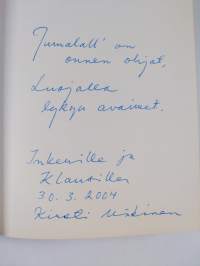 Jumalall' on
onnen ohjat,
Luojalla
lykyn avaimet.
Inkerille ja
Klausille
30.3.2004
Kirsti Mäkinen